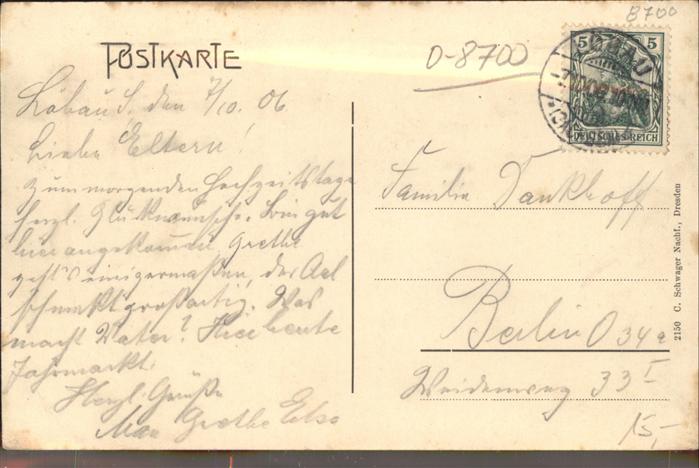 8700
POSTKARTE
D-8700
5 5
LÖBAU
DEUTSCHES REICH
Löbau S. den 7/10. 06
Liebe Eltern!
Zum morgenden Hochzeitstage
herzl. Glückwünsche. Bin gut
hier angekommen. Grethe
geht's einigermaßen, der Aal
schmeckt großartig. Was
macht Vater? Hier heute
Jahrmarkt.
Herzl. Grüße
Max Grethe Else
Familie Dankhoff
Berlin O 34a
Weidenweg 33 I
15,-
2150 C. Schwager Nachf., Dresden